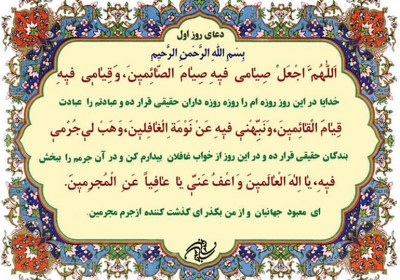 دعای روز اول
بِسْمِ اللهِ الرَّحْمنِ الرَّحیمِ
اَللّهُمَّ اجْعَلْ صِیامی فیهِ صِیامَ الصّائِمینَ، وَقِیامی فیهِ
خدایا در این روز روزه ام را روزه روزه داران حقیقی قرار ده و عبادتم را عبادت
قِیامَ الْقائِمینَ، وَنَبِّهْنی فیهِ عَنْ نَوْمَةِ الْغافِلینَ، وَهَبْ لی جُرْمی
بندگان حقیقی قرار ده و در این روز از خواب غافلان بیدارم کن و در آن جرمم را ببخش
فیهِ، یا اِلهَ الْعالَمینَ وَاعْفُ عَنّی یا عافِیاً عَنِ الْمُجْرِمینَ.
ای معبود جهانیان و از من بگذر ای گذشت کننده ازجرم مجرمین.